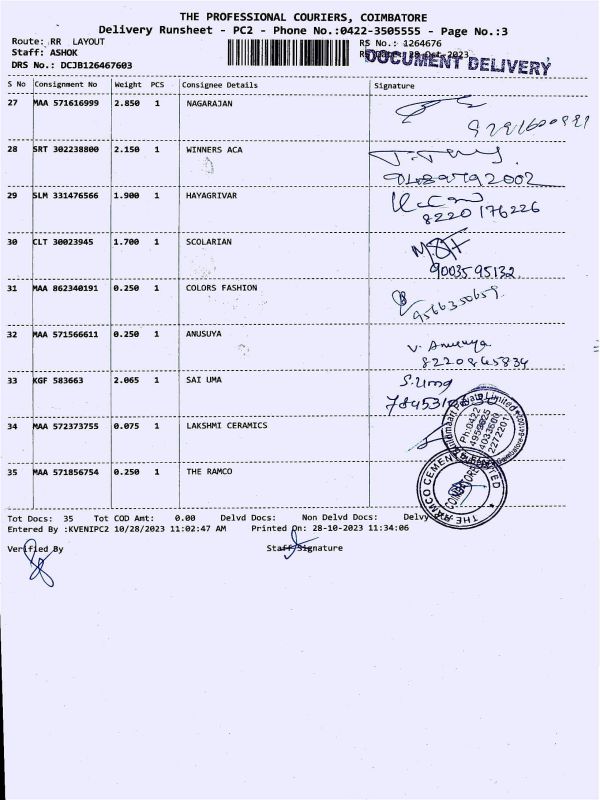 THE PROFESSIONAL COURIERS, COIMBATORE
Delivery Runsheet - PC2 - Phone No.:0422-3505555 - Page No.:3
Route: RR LAYOUT
RS No.: 1264676
Staff: ASHOK
28-Oct-2023
DOCUMENT DELIVERY
DRS No.: DCJB126467603
S No Consignment No Weight PCS Consignee Details Signature
27 MAA 571616999 2.850 1 NAGARAJAN
28 SRT 302238800 2.150 1 WINNERS ACA
29 SLM 331476566 1.900 1 HAYAGRIVAR
8220176226
30 CLT 30023945 1.700 1 SCOLARIAN
9003595132
31 MAA 862340191 0.250 1 COLORS FASHION
9566350659
32 MAA 571566611 0.250 1 ANUSUYA
V. Anusuya
8220845834
33 KGF 583663 2.065 1 SAI UMA
S. Uma
34 MAA 572373755 0.075 1 LAKSHMI CERAMICS
Private Limited
Ph:0422
4033600
2272201
35 MAA 571856754 0.250 1 THE RAMCO
THE RAMCO CEMENTS LIMITED
COIMBATORE
Tot Docs: 35 Tot COD Amt: 0.00 Delvd Docs: Non Delvd Docs: Delvy
Entered By :KVENIPC2 10/28/2023 11:02:47 AM Printed On: 28-10-2023 11:34:06
Verified By Staff Signature